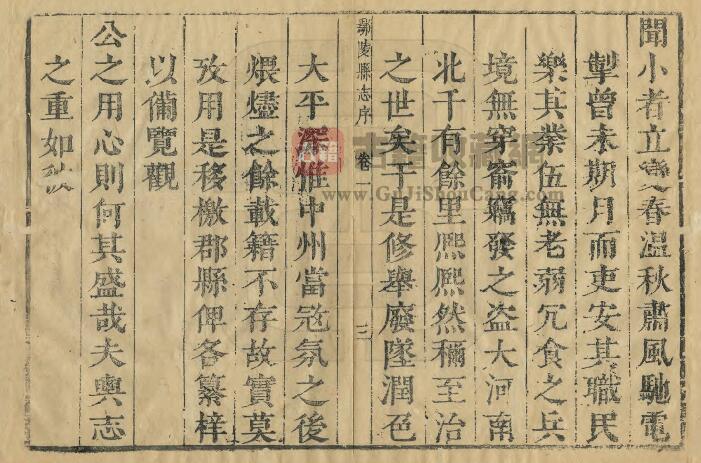 聞小者立變春溫秋肅風馳電
掣曾未期月而吏安其職民
樂其業伍無老弱冗食之兵
境無穿窬竊發之盜大河南
北千有餘里熈熈然稱至治
之世矣于是修舉廢墜潤色
鄢陵縣志序 卷一 三
大平深惟中州當寇氛之後
煨燼之餘載籍不存故實莫
攷用是移檄郡縣俾各纂梓
以備覽觀
公之用心則何其盛哉夫輿志
之重如
古籍收藏網
www.GuJiShouCang.com